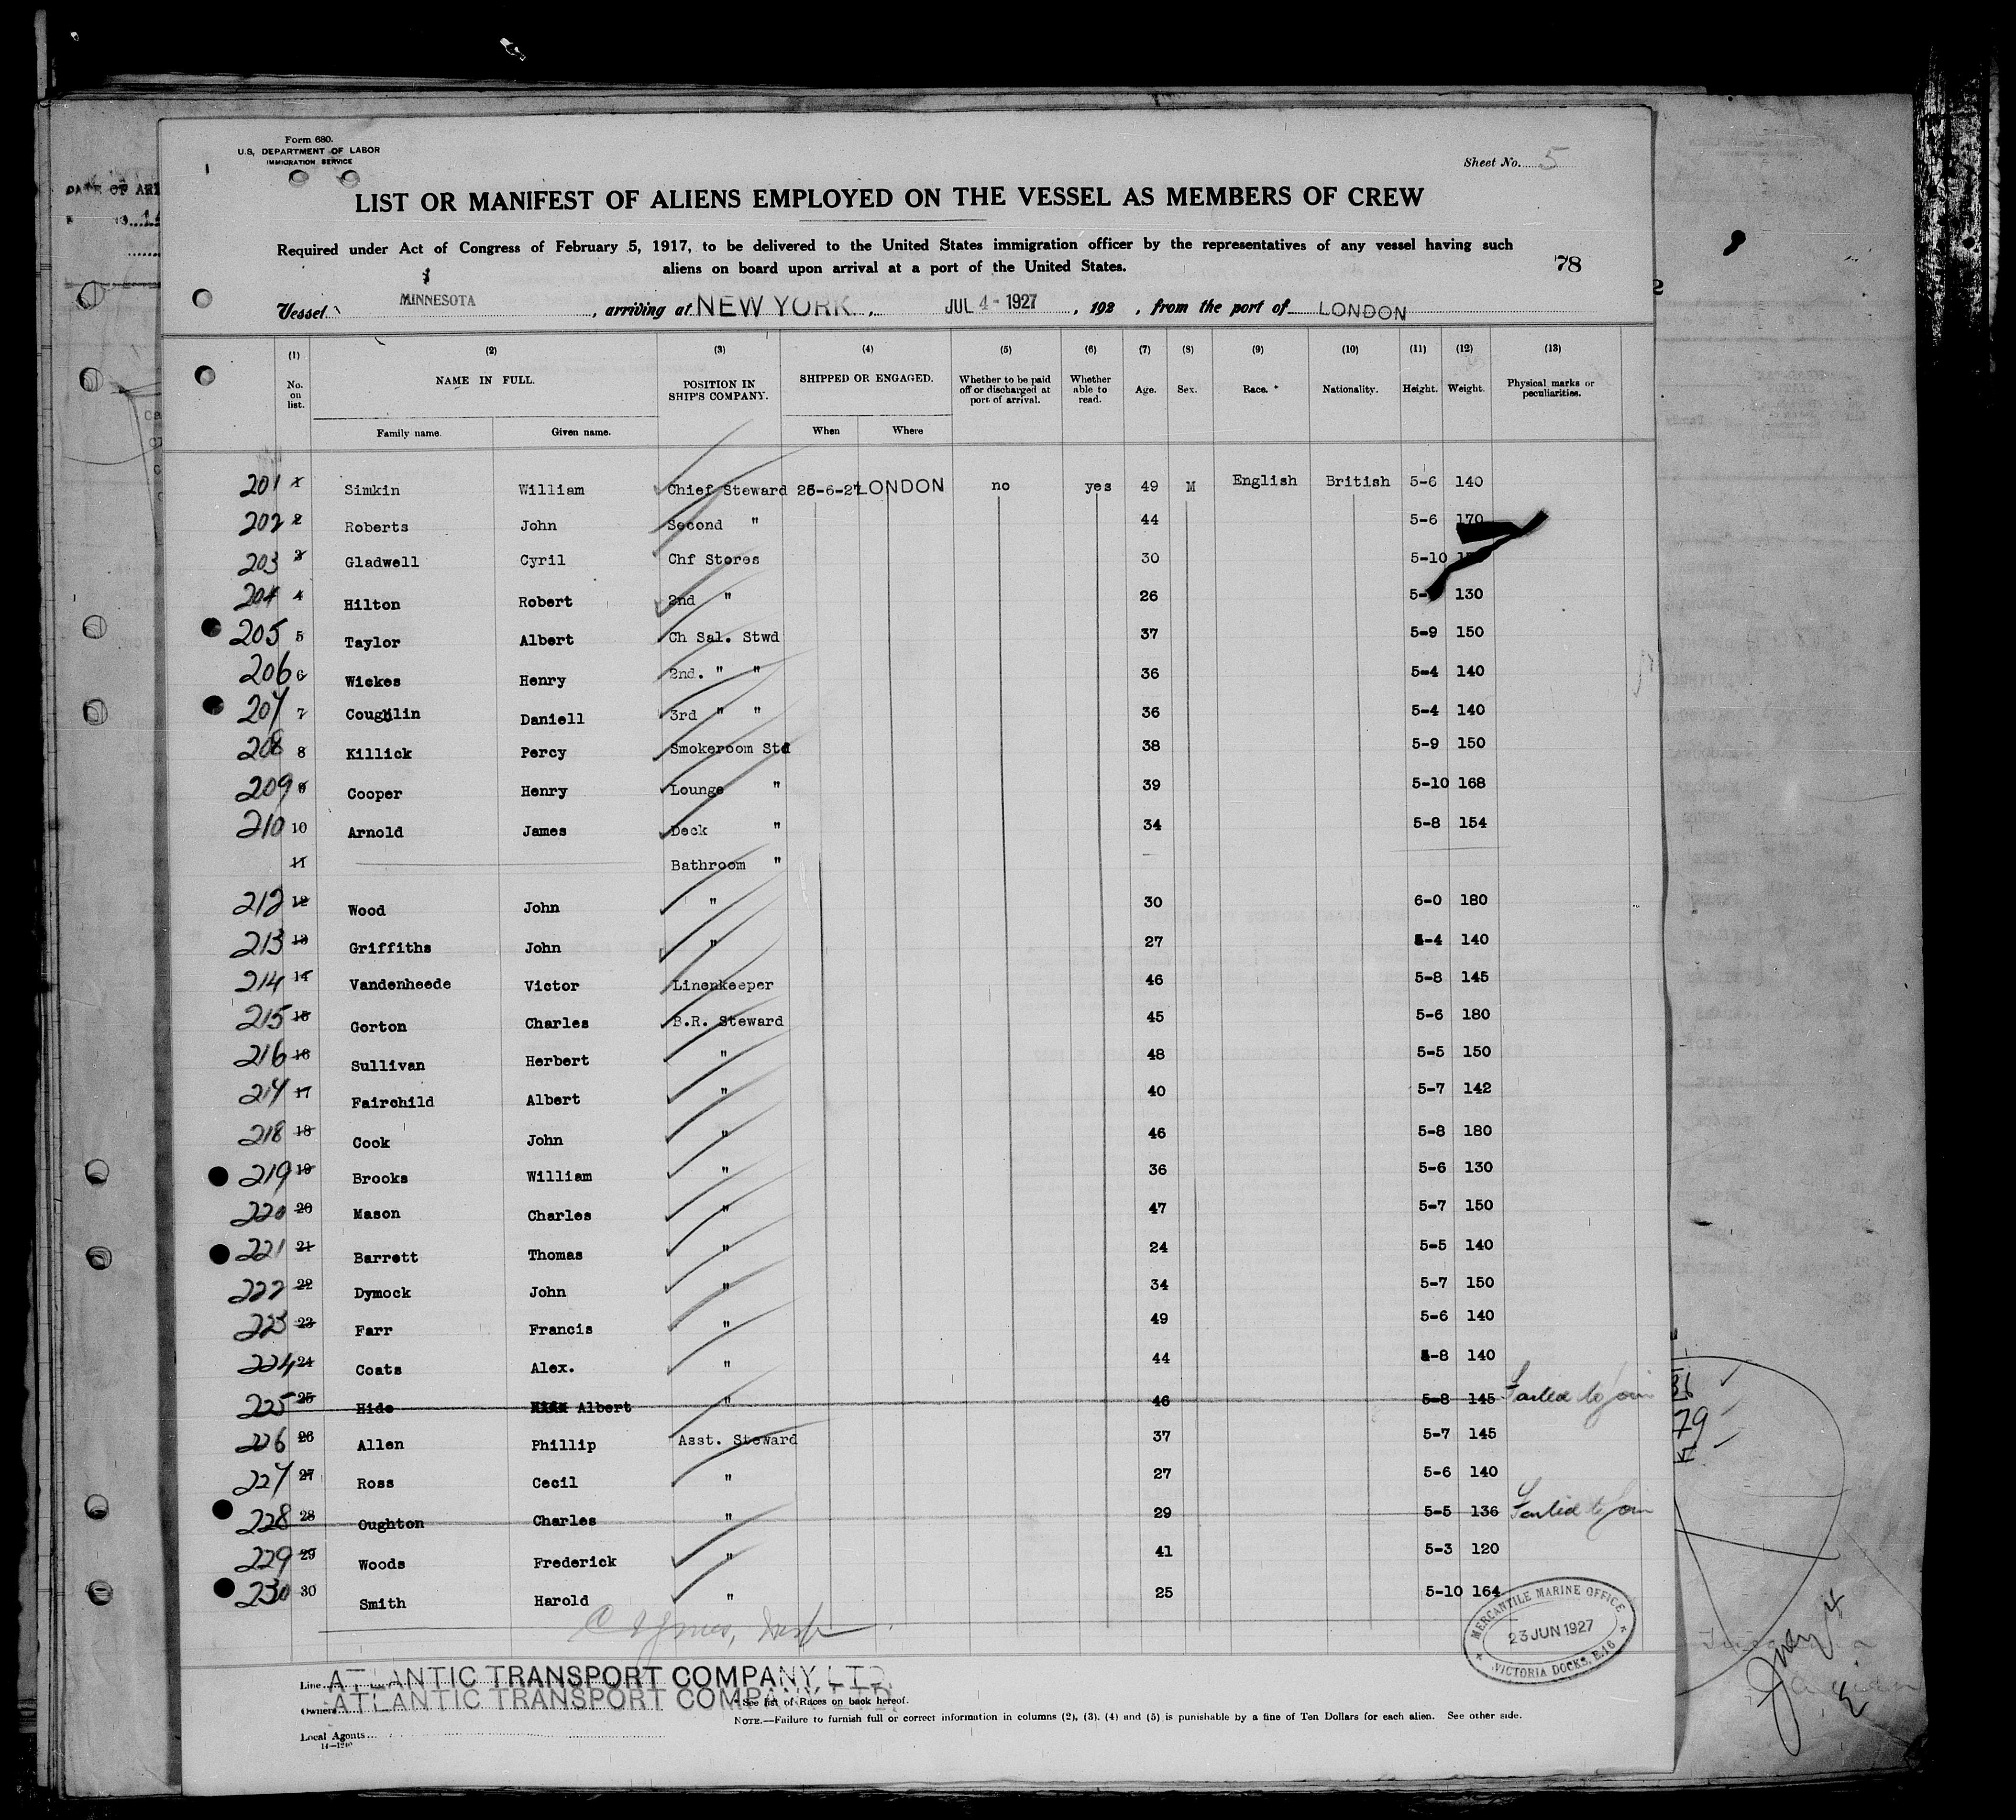 Form 680.
U.S. DEPARTMENT OF LABOR
IMMIGRATION SERVICE
Sheet No. 5
LIST OR MANIFEST OF ALIENS EMPLOYED ON THE VESSEL AS MEMBERS OF CREW
Required under Act of Congress of February 5, 1917, to be delivered to the United States immigration officer by the representatives of any vessel having such
aliens on board upon arrival at a port of the United States.
78
Vessel MINNESOTA, arriving at NEW YORK, JUL 4 - 1927, 192 , from the port of LONDON
(1) (2) (3) (4) (5) (6) (7) (8) (9) (10) (11) (12) (13)
No. on list. NAME IN FULL. POSITION IN SHIP'S COMPANY. SHIPPED OR ENGAGED. Whether to be paid off or discharged at port of arrival. Whether able to read. Age. Sex. Race.* Nationality. Height. Weight. Physical marks or peculiarities.
Family name. Given name. When Where
201 1 Simkin William Chief Steward 26-6-27 LONDON no yes 49 M English British 5-6 140
202 2 Roberts John Second " 44 5-6 170
203 3 Gladwell Cyril Chf Stores 30 5-10
204 4 Hilton Robert 2nd " 26 5- 130
205 5 Taylor Albert Ch Sal. Stwd 37 5-9 150
206 6 Wickes Henry 2nd. " " 36 5-4 140
207 7 Coughlin Daniell 3rd " " 36 5-4 140
208 8 Killick Percy Smokeroom Std 38 5-9 150
209 9 Cooper Henry Lounge " 39 5-10 168
210 10 Arnold James Deck " 34 5-8 154
11 Bathroom "
212 12 Wood John " 30 6-0 180
213 13 Griffiths John " 27 5-4 140
214 14 Vandenheede Victor Linenkeeper 46 5-8 145
215 15 Gorton Charles B.R. Steward 45 5-6 180
216 16 Sullivan Herbert " 48 5-5 150
217 17 Fairchild Albert " 40 5-7 142
218 18 Cook John " 46 5-8 180
219 19 Brooks William " 36 5-6 130
220 20 Mason Charles " 47 5-7 150
221 21 Barrett Thomas " 24 5-5 140
222 22 Dymock John " 34 5-7 150
223 23 Farr Francis " 49 5-6 140
224 24 Coats Alex. " 44 5-8 140
225 25 Hide Albert " 46 5-8 145 Failed to join
226 26 Allen Phillip Asst. Steward 37 5-7 145
227 27 Ross Cecil " 27 5-6 140
228 28 Oughton Charles " 29 5-5 136 Failed to join
229 29 Woods Frederick " 41 5-3 120
230 30 Smith Harold " 25 5-10 164
MERCANTILE MARINE OFFICE
23 JUN 1927
VICTORIA DOCKS, E.16
Line ATLANTIC TRANSPORT COMPANY, LTD.
Owners ATLANTIC TRANSPORT COMPANY, LTD.
* See list of Races on back hereof.
NOTE.—Failure to furnish full or correct information in columns (2), (3), (4) and (5) is punishable by a fine of Ten Dollars for each alien. See other side.
Local Agents
14—1240